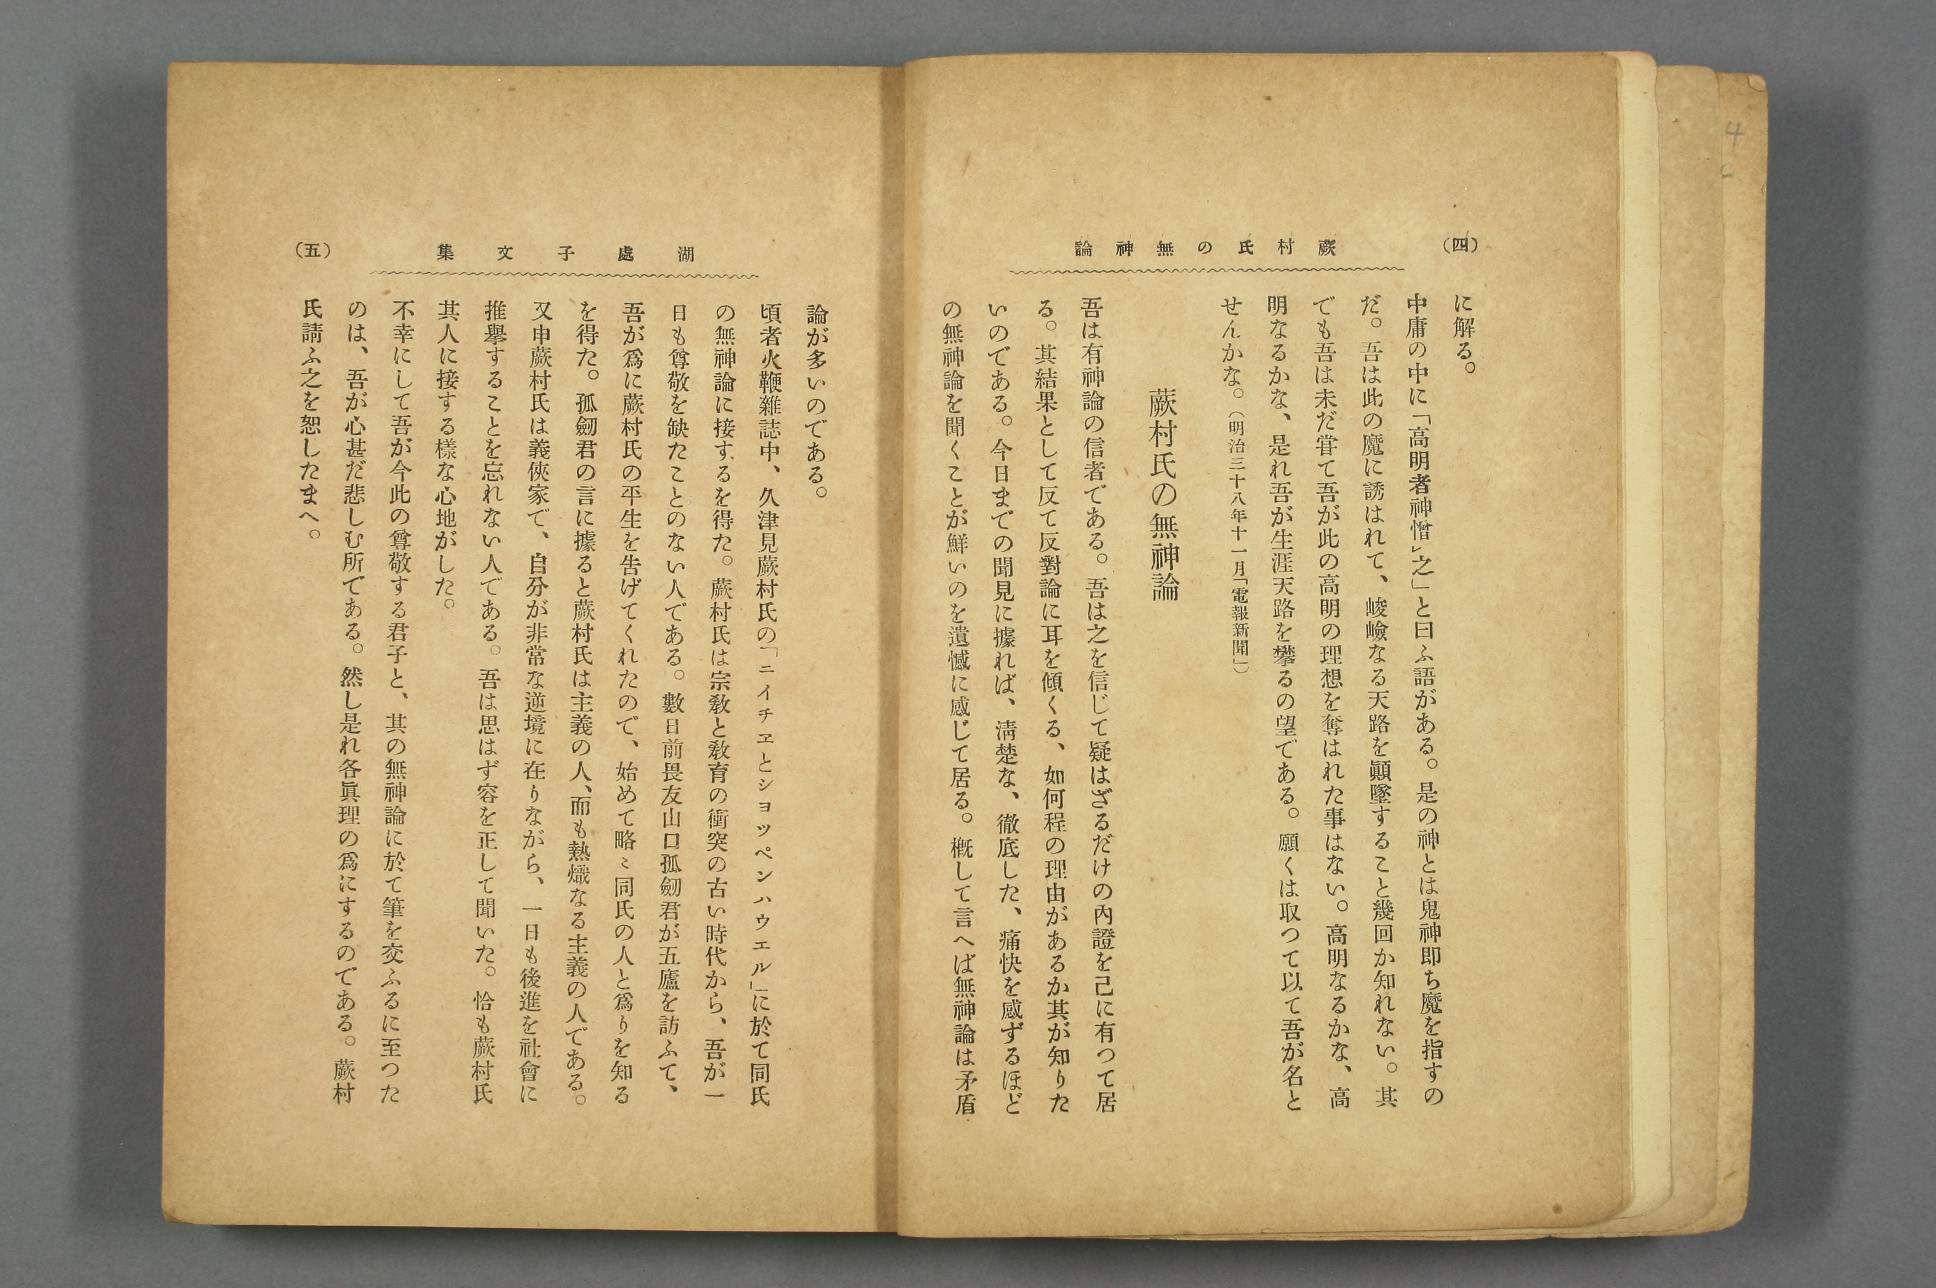 (四)
蕨村氏の無神論
に解る。
中庸の中に「高明者神憎レ之」と曰ふ語がある。是の神とは鬼神即ち魔を指すの
だ。吾は此の魔に誘はれて、峻嶮なる天路を顚墜すること幾回か知れない。其
でも吾は未だ甞て吾が此の高明の理想を奪はれた事はない。高明なるかな、高
明なるかな、是れ吾が生涯天路を攀るの望である。願くは取つて以て吾が名と
せんかな。(明治三十八年十一月「電報新聞」)
蕨村氏の無神論
吾は有神論の信者である。吾は之を信じて疑はざるだけの内證を己に有つて居
る。其結果として反て反對論に耳を傾くる、如何程の理由があるか其が知りた
いのである。今日までの聞見に據れば、淸楚な、徹底した、痛快を感ずるほど
の無神論を聞くことが鮮いのを遺憾に感じて居る。槪して言へば無神論は矛盾
湖處子文集
(五)
論が多いのである。
頃者火鞭雜誌中、久津見蕨村氏の「ニイチヱとショッペンハウエル」に於て同氏
の無神論に接するを得た。蕨村氏は宗敎と敎育の衝突の古い時代から、吾が一
日も尊敬を缺たことのない人である。數日前畏友山口孤劒君が五廬を訪ふて、
吾が爲に蕨村氏の平生を告げてくれたので、始めて略〻同氏の人と爲りを知る
を得た。孤劒君の言に據ると蕨村氏は主義の人、而も熱熾なる主義の人である。
又申蕨村氏は義俠家で、自分が非常な逆境に在りながら、一日も後進を社會に
推擧することを忘れない人である。吾は思はず容を正して聞いた。恰も蕨村氏
其人に接する樣な心地がした。
不幸にして吾が今此の尊敬する君子と、其の無神論に於て筆を交ふるに至つた
のは、吾が心甚だ悲しむ所である。然し是れ各眞理の爲にするのである。蕨村
氏請ふ之を恕したまへ。
4